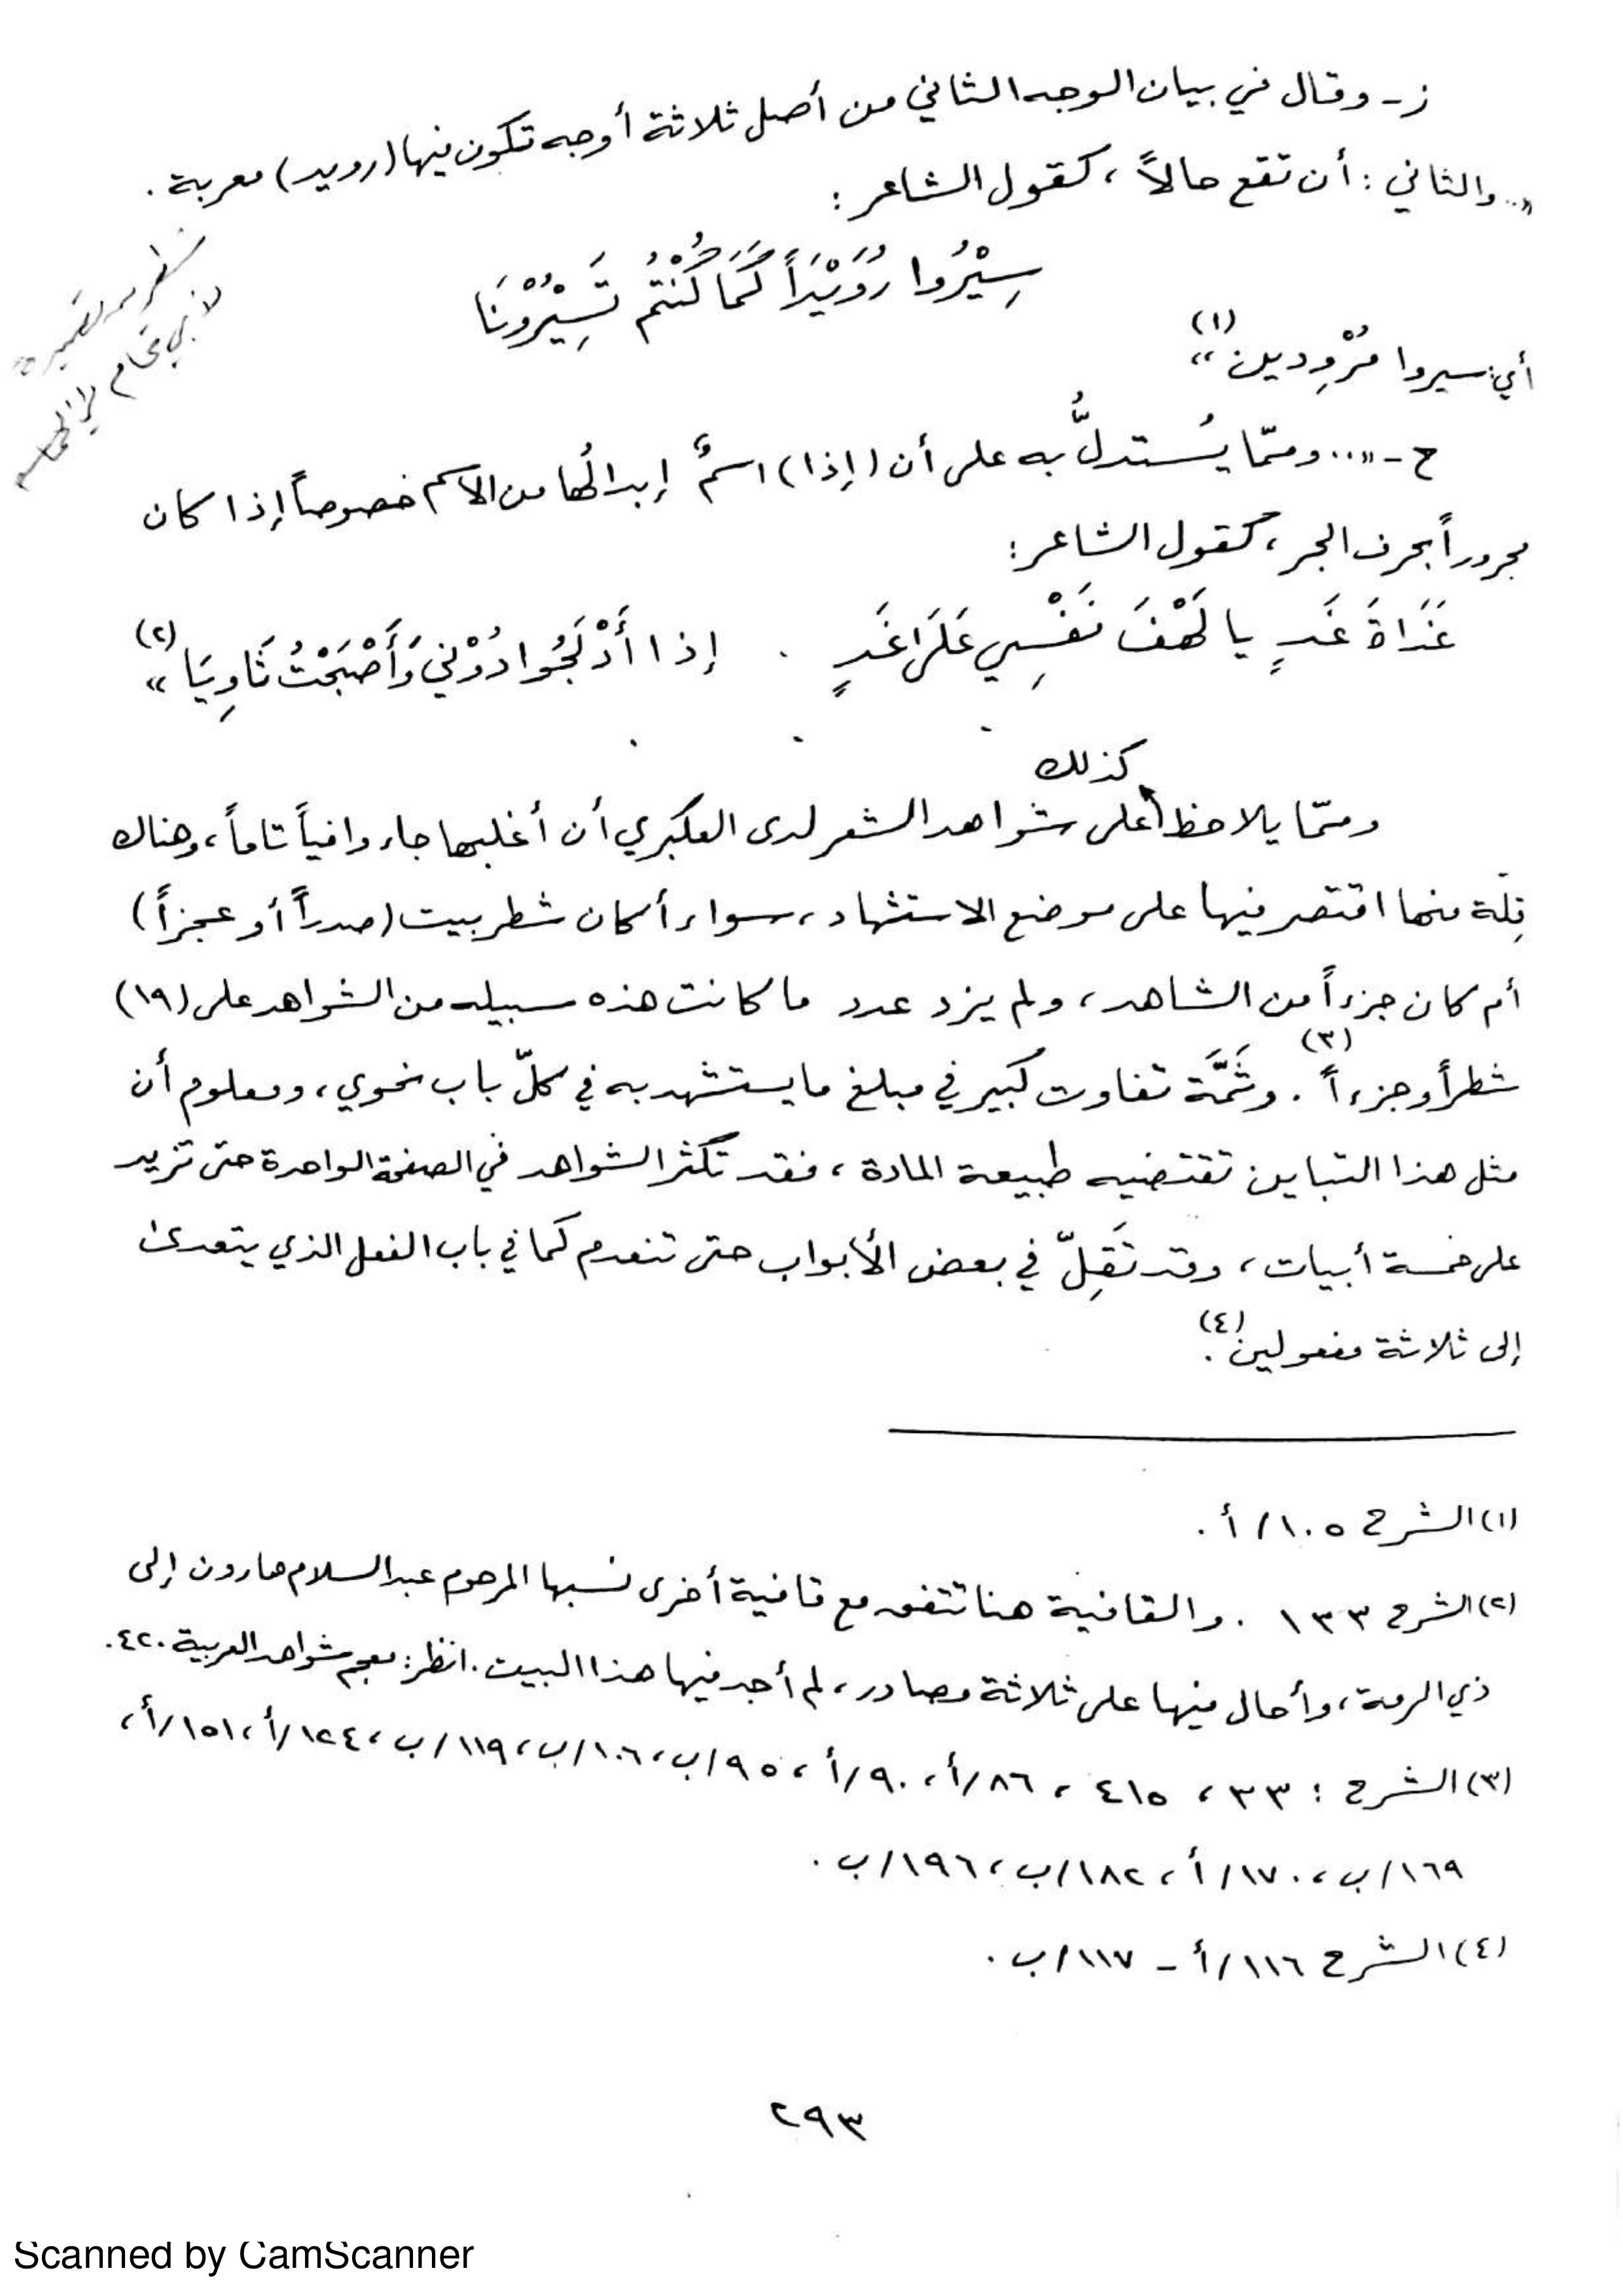 ز- وقال في بيان الوجه الثاني من أصل ثلاثة أوجه تكون فيها (رويد) معربة.
«..والثاني: أن تقع حالاً، كقول الشاعر:
سِيْرُوا رُوَيْدَاً كَمَا كُنْتُمُ تَسِيْرُوْنَا
أي: سيروا مُرْوِدين» (١)
ح- «... وممّا يُستدلُّ به على أن (إذا) اسمٌ إبدالُها من الاسم خصوصاً إذا كان
مجروراً بحرف الجر، كقول الشاعر:
غَدَاةَ غَدٍ يا لَهْفَ نَفْسِي عَلَى غَدٍ . إذا أَدْلَجُوا دُوْنِي وَأَصْبَحْتُ ثَاوِيَا» (٢)
ومّما يلاحظ كذلك على شواهد الشعر لدى العكبري أن أغلبها جاء وافياً تاماً، وهناك
قِلة منها اقتصر فيها على موضع الاستشهاد، سواء أكان شطر بيت (صدراً أو عجزاً)
أم كان جزءاً من الشاهد، ولم يزد عدد ما كانت هذه سبيله من الشواهد على (١٩)
شطراً وجزءاً (٣). وثَمَّةَ تفاوت كبير في مبلغ ما يستشهد به في كلّ باب نحوي، ومعلوم أن
مثل هذا التباين تقتضيه طبيعة المادة، فقد تكثر الشواهد في الصفحة الواحدة حتى تزيد
على خمسة أبيات، وقد تَقِلّ في بعض الأبواب حتى تنعدم كما في باب الفعل الذي يتعدى
إلى ثلاثة مفعولين (٤).
(١) الشرح ١٠٥/أ.
(٢) الشرح ١٣٣. والقافية هنا تتفق مع قافية أخرى نسبها المرحوم عبد السلام هارون إلى
ذي الرمة، وأحال فيها على ثلاثة مصادر، لم أجد فيها هذا البيت. انظر: معجم شواهد العربية ٤٢٠.
(٣) الشرح: ٣٣، ٤١٥، ٨٦/أ، ٩٠/أ، ٩٥/ب، ١٠٦/ب، ١١٩/ب، ١٢٤/أ، ١٥١/أ،
١٦٩/ب، ١٧٠/أ، ١٨٢/ب، ١٩٦/ب.
(٤) الشرح ١١٦/أ - ١١٧/ب.
٢٩٣
Scanned by CamScanner